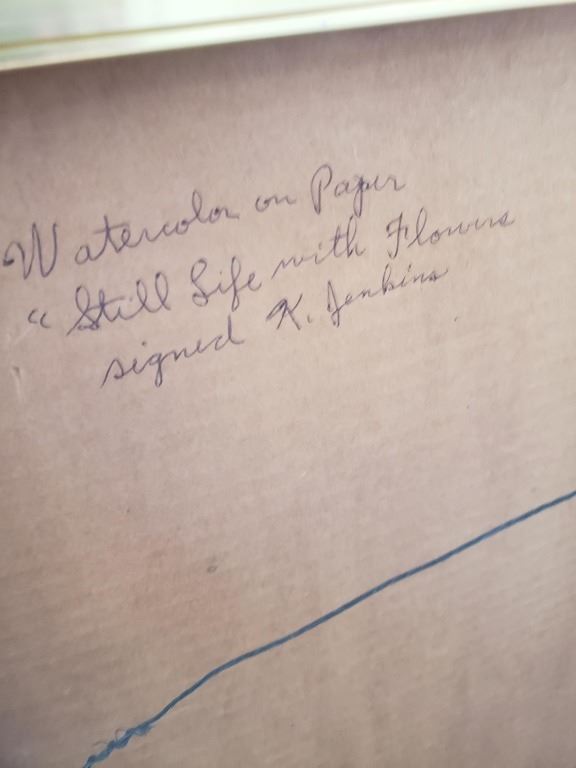 Watercolor on Paper
"Still Life with Flowers
signed K. Jenkins